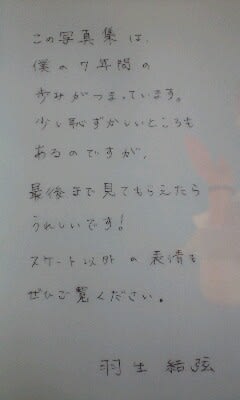 この写真集は、
僕の7年間の
歩みがつまっています。
少し恥ずかしいところも
あるのですが、
最後まで見てもらえたら
うれしいです!
スケート以外の表情も
ぜひご覧ください。
羽生結弦